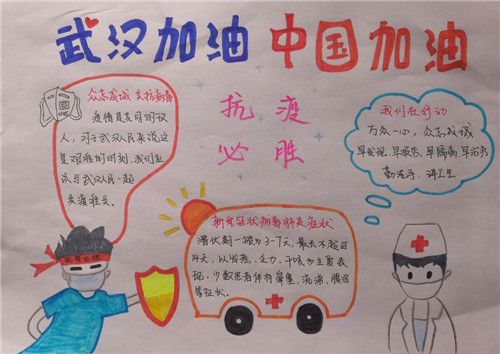 武汉加油 中国加油
众志成城 共抗病毒
疫情是共同的敌
人，对于武汉人民来说这
是艰难的时刻，我们应
该与武汉人民一起
共渡难关。
抗疫
必胜
我们在行动
万众一心，众志成城
早发现、早报告、早隔离、早治疗
勤洗手、讲卫生
新型冠状病毒肺炎症状
潜伏期一般为3-7天，最长不超过
14天，以发热、乏力、干咳为主要表
现，少数患者伴有鼻塞、流涕、腹泻
等症状。
武汉必胜